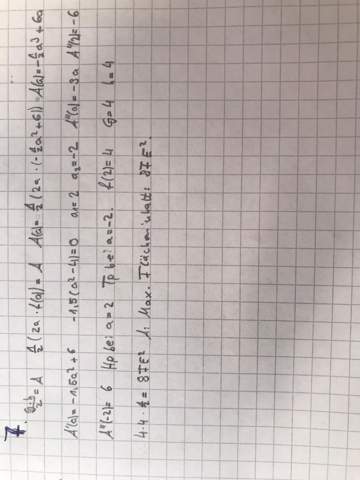 7.
g·h/2 = A    1/2 (2a · f(a)) = A    A(a) = 1/2 (2a · (-1/2a² + 6)) = A(a) = -1/2a³ + 6a
A'(a) = -1,5a² + 6    -1,5(a² - 4) = 0    a₁ = 2    a₂ = -2    A''(a) = -3a    A''(2) = -6
A''(-2) = 6    Hp bei a = 2    Tp bei a = -2.    f(2) = 4    G = 4    h = 4
4 · 4 · 1/2 = 8 FE²    A: Max. Flächeninhalt: 8 FE².